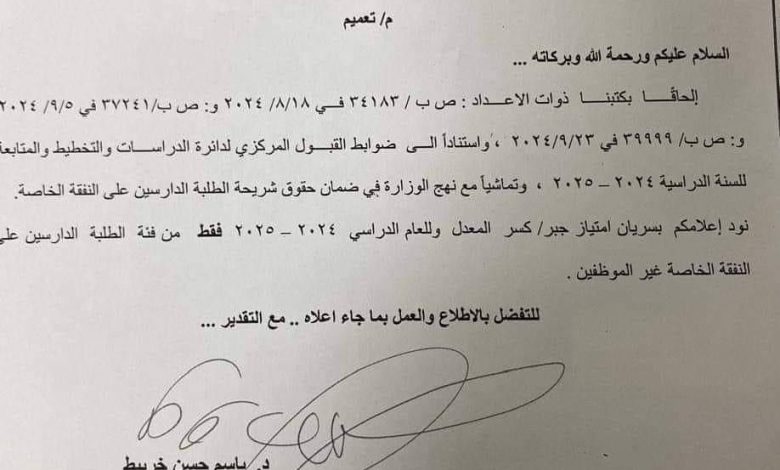 م/ تعميم
السلام عليكم ورحمة الله وبركاته ...
إلحاقًا بكتبنا ذوات الاعداد : ص ب / ٣٤١٨٣ في ٢٠٢٤/٨/١٨ و: ص ب/ ٣٧٢٤١ في ٢٠٢٤/٩/٥
و: ص ب/ ٣٩٩٩٩ في ٢٠٢٤/٩/٢٣ ، واستناداً الى ضوابط القبول المركزي لدائرة الدراسات والتخطيط والمتابعة
للسنة الدراسية ٢٠٢٤ – ٢٠٢٥ ، وتماشياً مع نهج الوزارة في ضمان حقوق شريحة الطلبة الدارسين على النفقة الخاصة.
نود إعلامكم بسريان امتياز جبر/ كسر المعدل وللعام الدراسي ٢٠٢٤ – ٢٠٢٥ فقط من فئة الطلبة الدارسين على
النفقة الخاصة غير الموظفين .
للتفضل بالاطلاع والعمل بما جاء اعلاه .. مع التقدير ...
د. باسم حسن خريبط